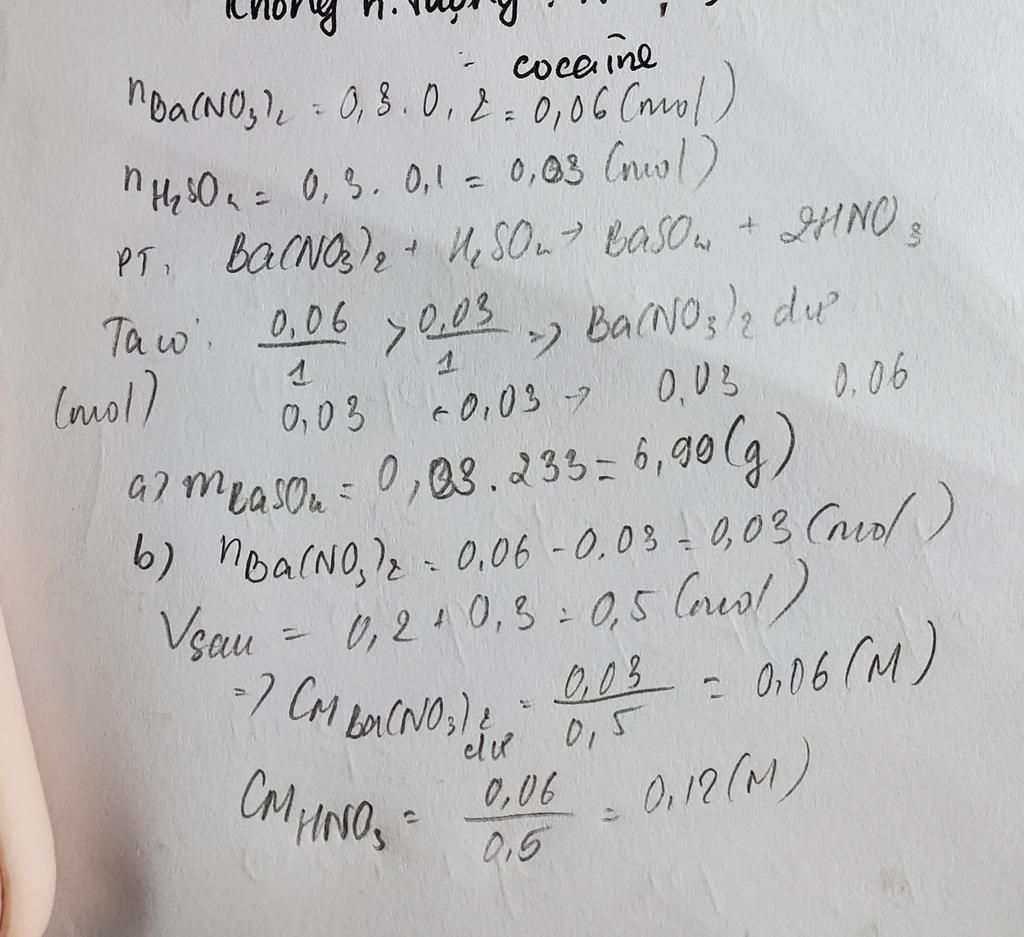 cocaine
nBa(NO3)2 = 0,3 . 0,2 = 0,06 (mol)
nH2SO4 = 0,3 . 0,1 = 0,03 (mol)
PT: Ba(NO3)2 + H2SO4 → BaSO4 + 2HNO3
Ta có: 0,06/1 > 0,03/1 => Ba(NO3)2 dư
(mol) 0,03 ← 0,03 → 0,03 0,06
a) mBaSO4 = 0,03 . 233 = 6,99 (g)
b) nBa(NO3)2 = 0,06 - 0,03 = 0,03 (mol)
Vsau = 0,2 + 0,3 = 0,5 (mol)
=> CM Ba(NO3)2 dư = 0,03/0,5 = 0,06 (M)
CM HNO3 = 0,06/0,5 = 0,12 (M)